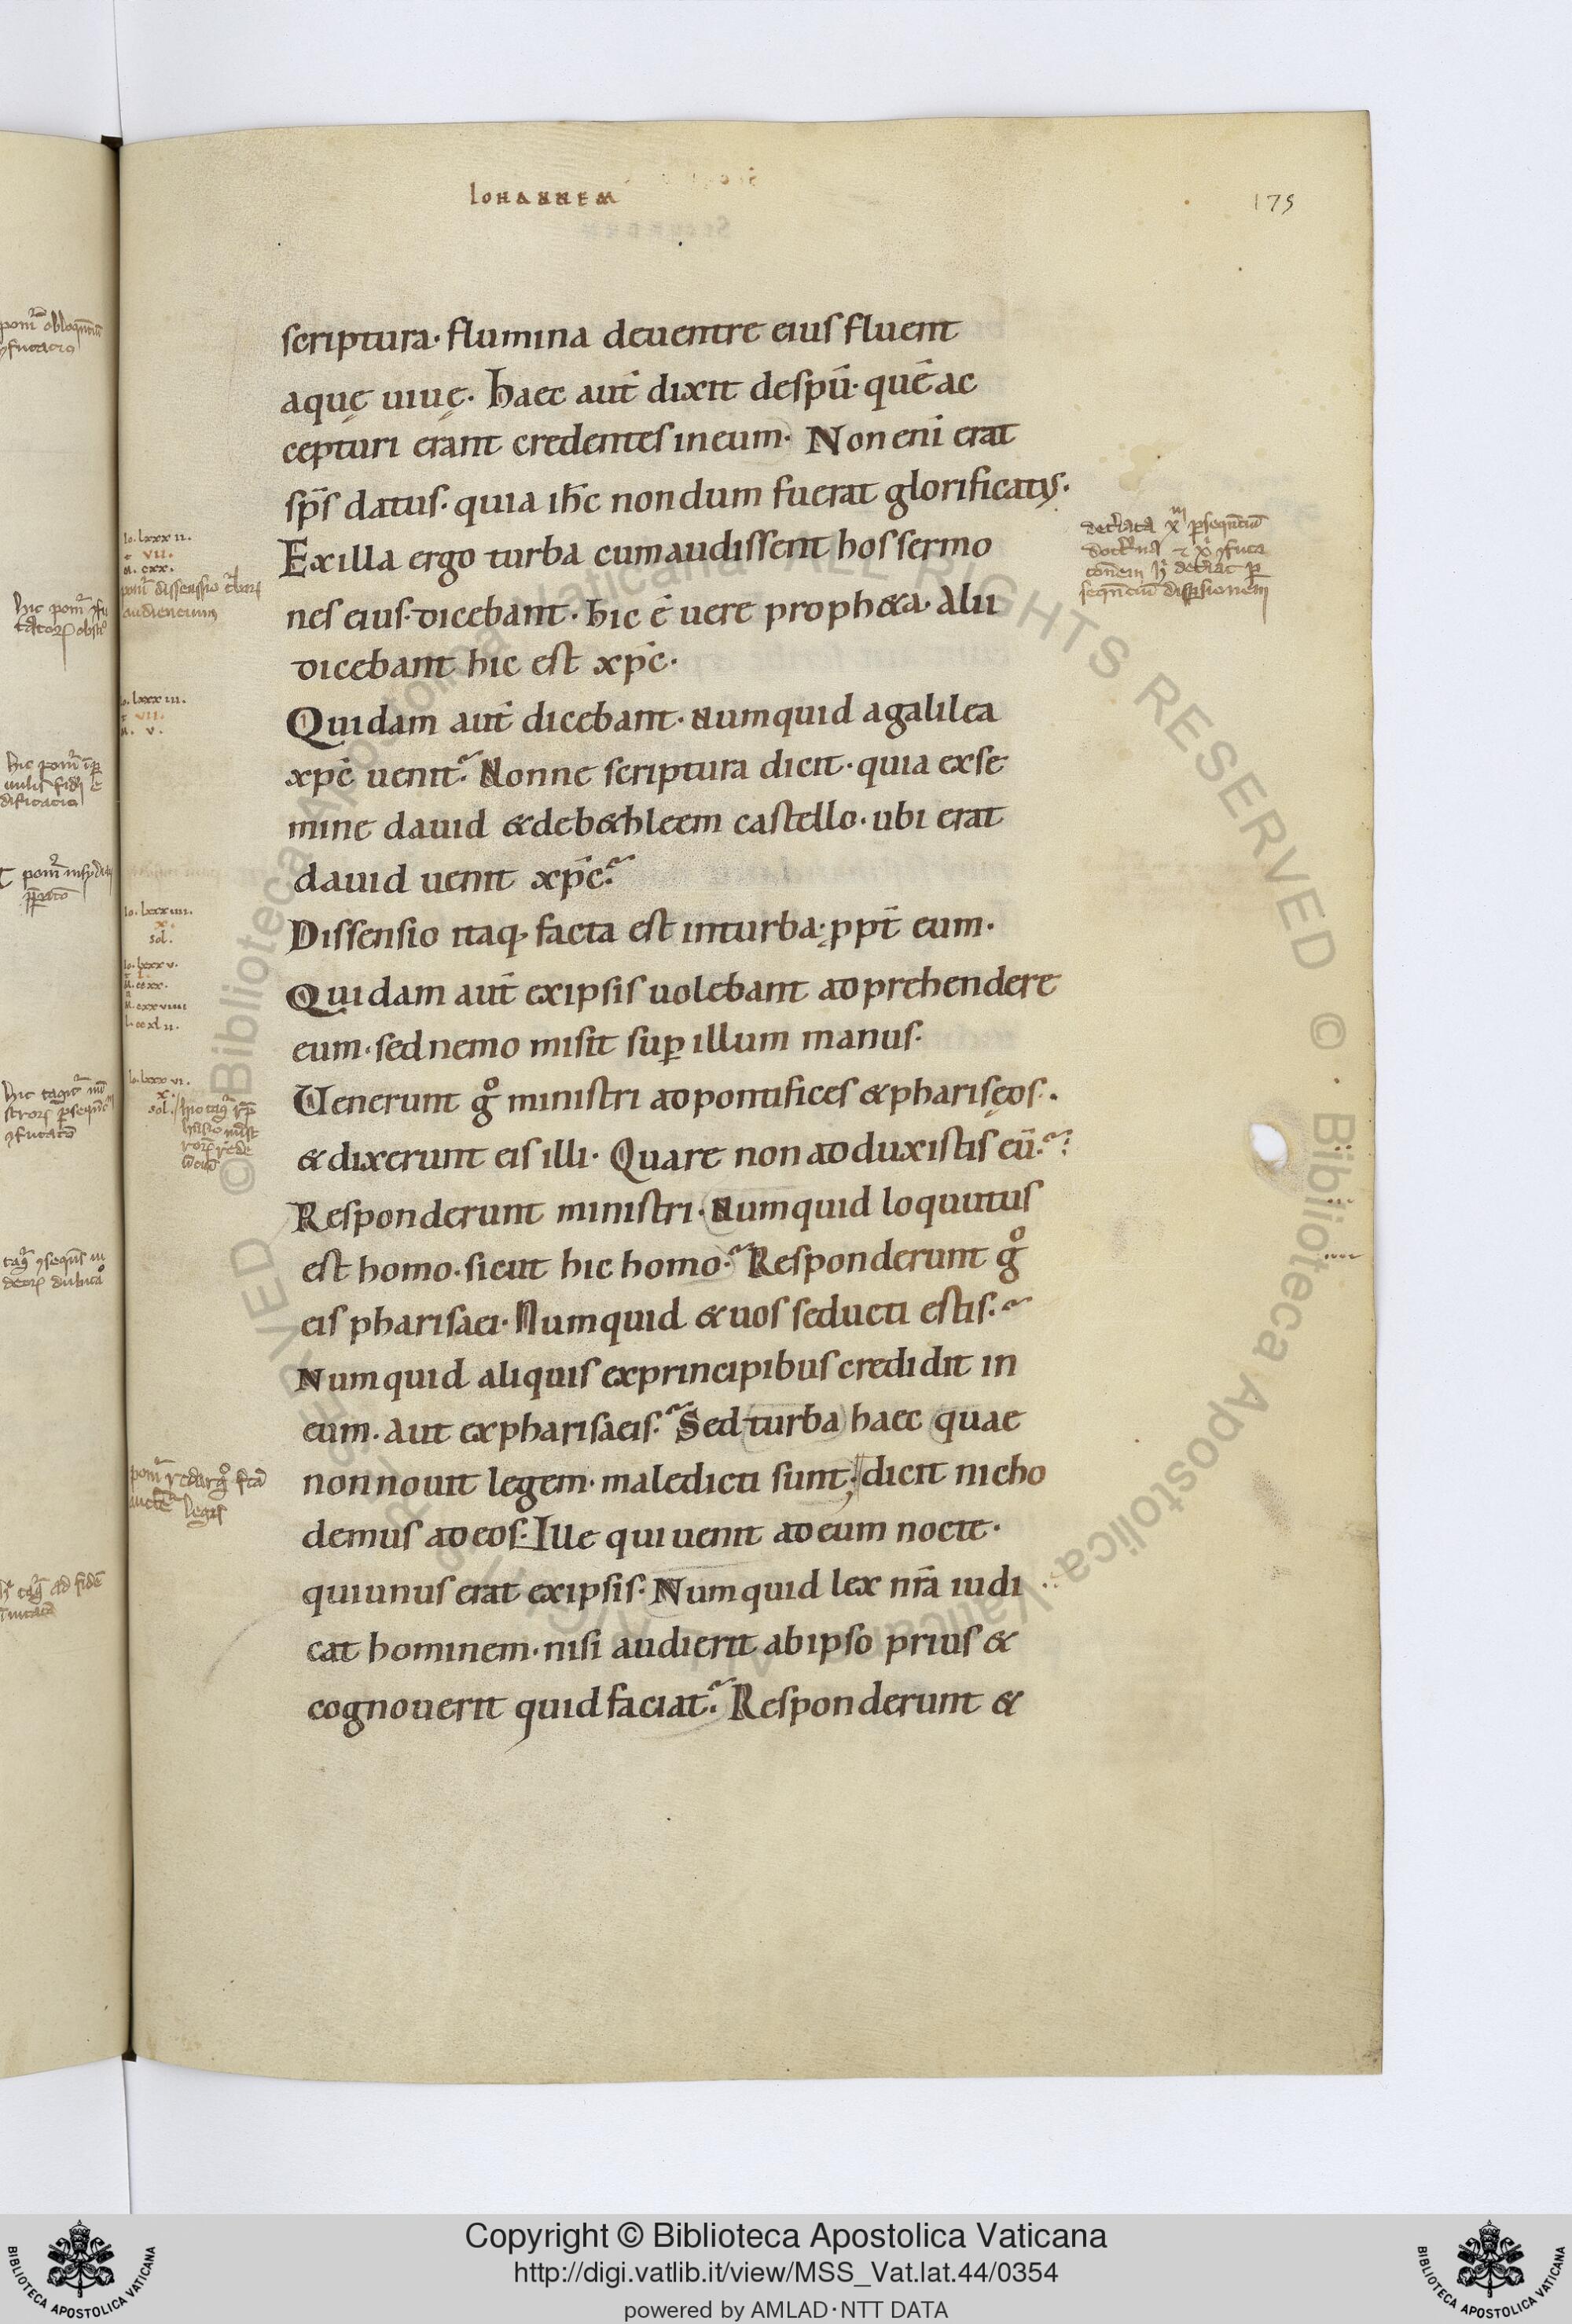 Iohannem
175
scriptura· flumina deuentre eius fluent
aquę uiuę· haec aut̄ dixit despū· quē ac
cepturi erant credentes ineum· Non eni̅ erat
sp̅s datus· quia ih̅c nondum fuerat glorificatus·
Exilla ergo turba cumaudissent hos sermo
nes eius· dicebant· hic ē uere proph&a· Alii
dicebant hic est xp̅c·
Quidam aut̄ dicebant· numquid agalilea
xp̅c uenit? Nonne scriptura dicit· quia exse
mine dauid &deb&hleem castello· ubi erat
dauid uenit xp̅c?
Dissensio itaq· facta est inturba· ppt̄ eum·
Quidam aut̄ exipsis uolebant adprehendere
eum· sed nemo misit sup̲ illum manus·
Uenerunt gº ministri adpontifices &phariseos·
&dixerunt eis illi· Quare non adduxistis eū?
Responderunt ministri· Numquid loquutus
est homo· sicut hic homo? Responderunt gº
eis pharisaei· Numquid &uos seducti estis?
Numquid aliquis exprincipibus credidit in
eum· aut expharisaeis? Sed turba haec quae
nonnouit legem· maledicti sunt; dicit nicho
demus adeos· Ille qui uenit adeum nocte·
quiunus erat exipsis· Numquid lex nr̄a iudi
cat hominem· nisi audierit abipso prius &
cognouerit quid faciat? Responderunt &
Io. lxxxii.
VII.
M. cxx.
audiencium
Io. lxxxiii.
VII.
M. v.
Io. lxxxiiii.
x.
sol.
Io. lxxxv.
Io. lxxxvi.
x.
sol.
Copyright © Biblioteca Apostolica Vaticana
http://digi.vatlib.it/view/MSS_Vat.lat.44/0354
powered by AMLAD·NTT DATA
BIBLIOTECA APOSTOLICA VATICANA
BIBLIOTECA APOSTOLICA VATICANA